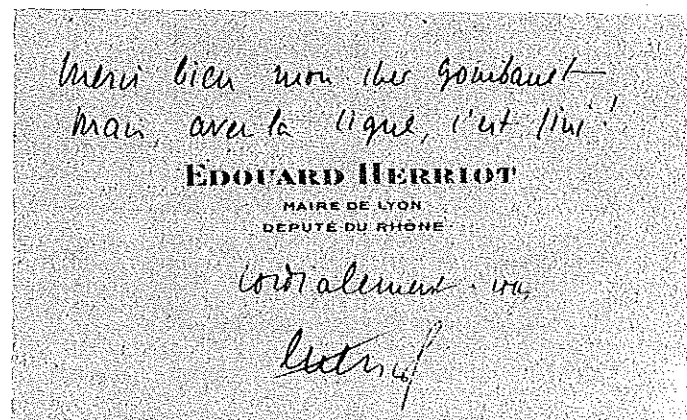 Merci bien mon cher Gombault
Mais, avec la ligue, c'est fini !
EDOUARD HERRIOT
MAIRE DE LYON
DÉPUTÉ DU RHÔNE
Cordialement